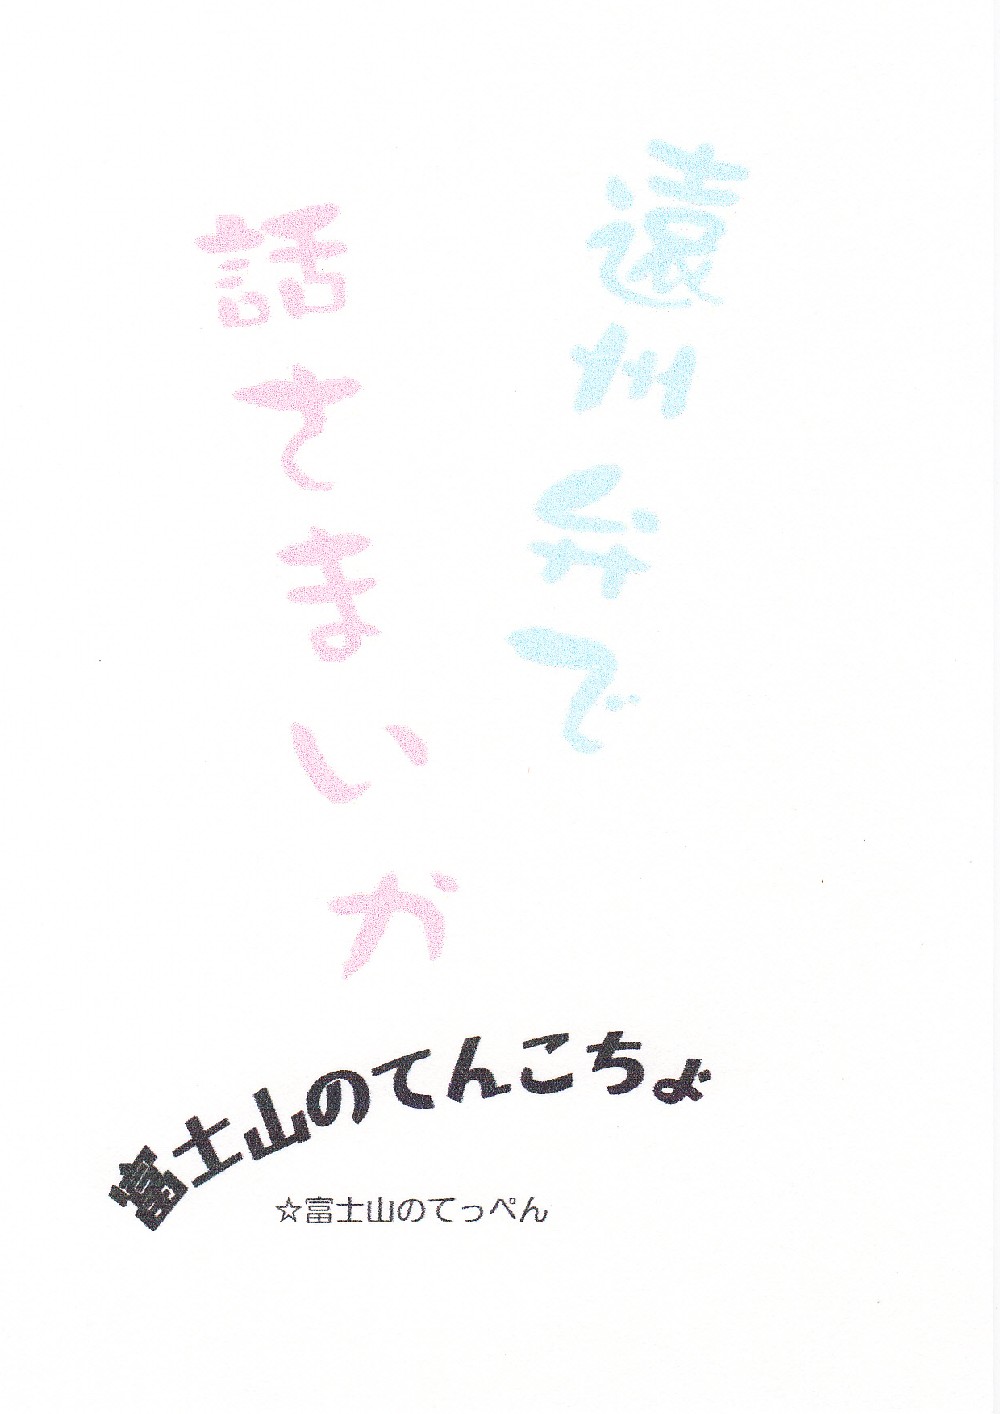 遠州弁で
話てまいか
富士山のてんこちょ
☆富士山のてっぺん